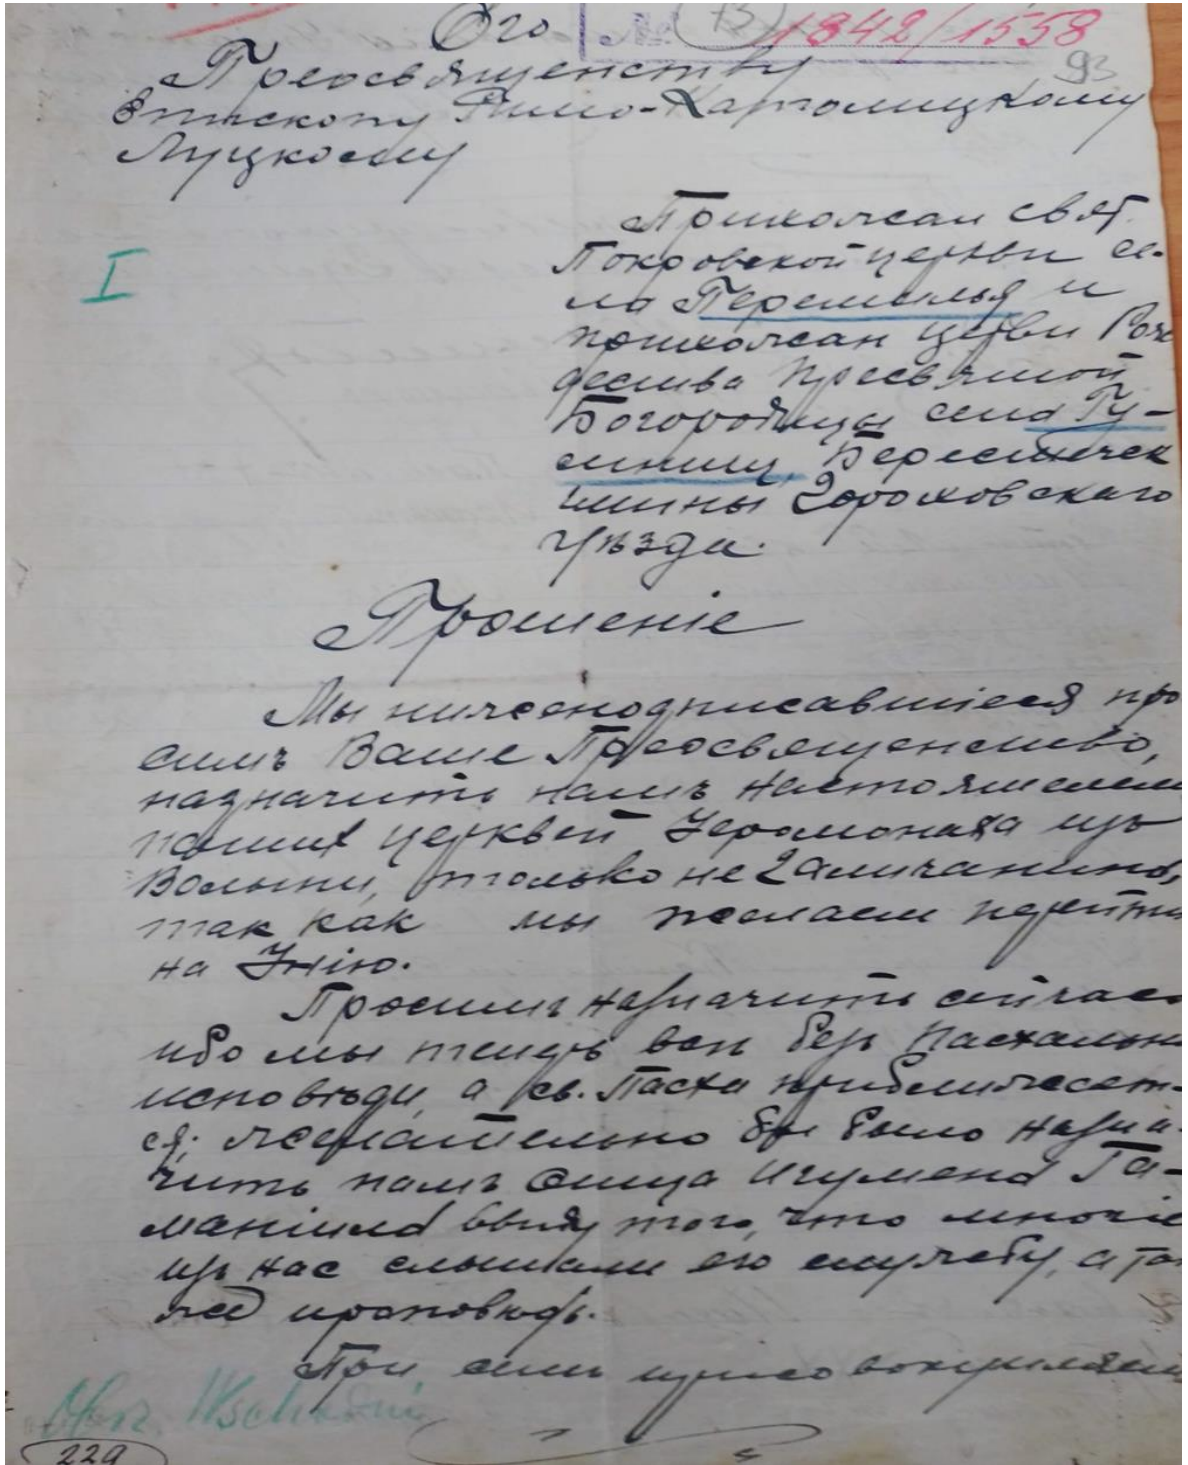 Его № 73 1842/1558
Преосвященству 93
Епископу Римо-Католицкому
Луцкому
Прихожан свят.
I Покровской церкви се-
ла Перемылья и
прихожан церкви Рож
дества Пресвятой
Богородицы села Гу-
Берестечек
чины Гороховскаго
уѣзда.
Прошеніе
Мы нижеподписавшіеся про
симъ Ваше Преосвященство,
назначить намъ настоятелем
наших церквей Іеромонаха изъ
Волыни, только не Галичанинъ,
так как мы желаем перейти
на Унію.
Просимъ назначить сейчас
ибо мы теперь все безъ Пасхальн
исповѣди, а св. Пасха приближает-
ся; желательно бы было назна-
чить намъ отца Игумена
ввиду того, что многіе
изъ нас слышали его службу, а так
же проповѣдь.
При семъ присовокупляем
Obrz. Wschodni
229